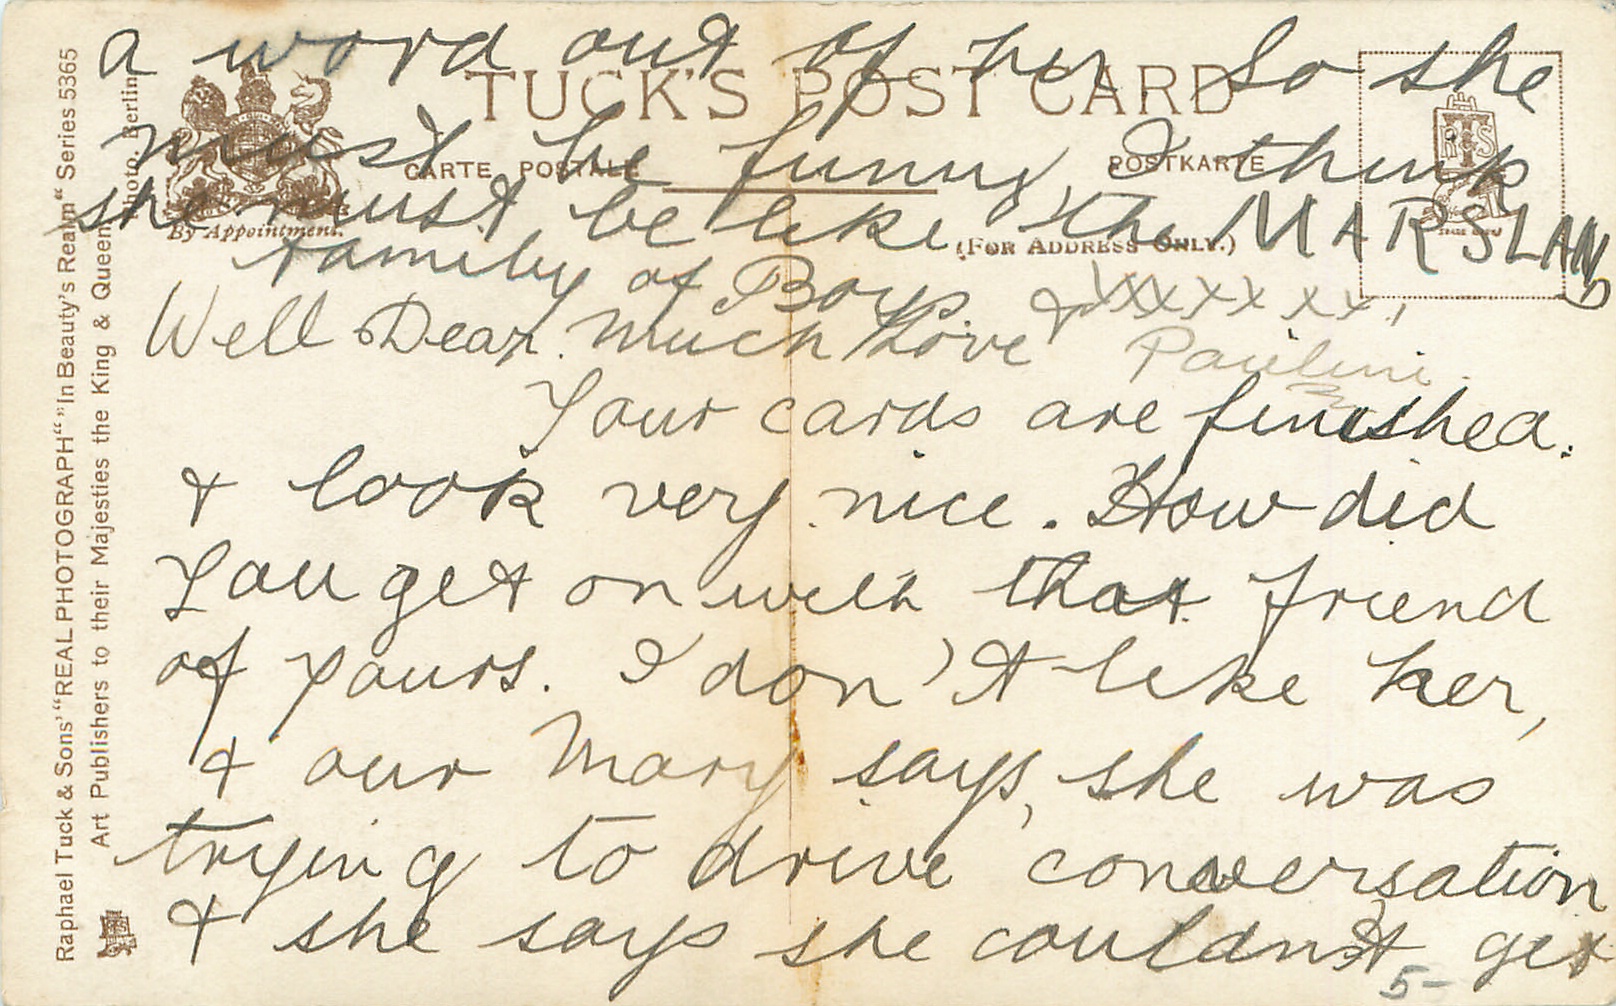 a word out of her. So she
must be funny, I think
she must be like the MARSLAND
family of Boys.
Well Dear. Much Love & xxxxxxxx,
Pauline.
Your cards are finished.
& look very nice. How did
you get on with that friend
of yours. I don't like her,
& our Mary says, she was
trying to drive conversation
& she says she couldn't get
5-
TUCK'S POST CARD
CARTE POSTALE
POSTKARTE
(FOR ADDRESS ONLY.)
By Appointment.
Raphael Tuck & Sons' "REAL PHOTOGRAPH" "In Beauty's Realm" Series 5365
Art Publishers to their Majesties the King & Queen
Photo. Berlin
RTS